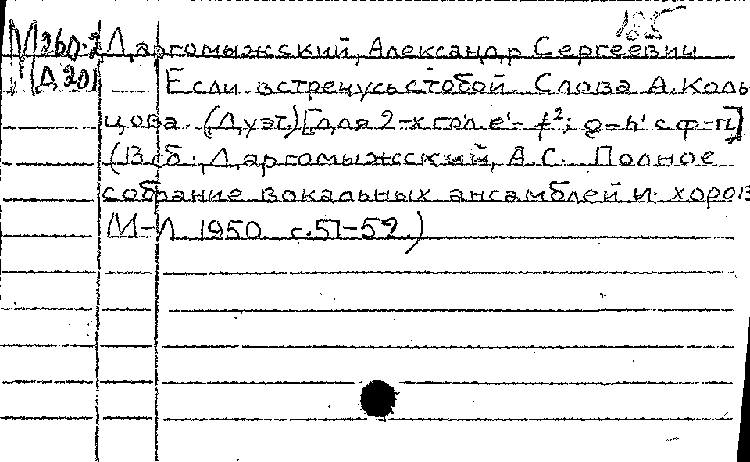 185
М260.2 Даргомыжский, Александр Сергеевич
Д201 Если встречусь с тобой. Слова А. Коль-
цова. (Дуэт.) [для 2-х гол. e¹-f²; g-h¹ с ф-п]
(В сб.: Даргомыжсский, А.С. Полное
собрание вокальных ансамблей и хоров
М-Л 1950 с.51-52.)